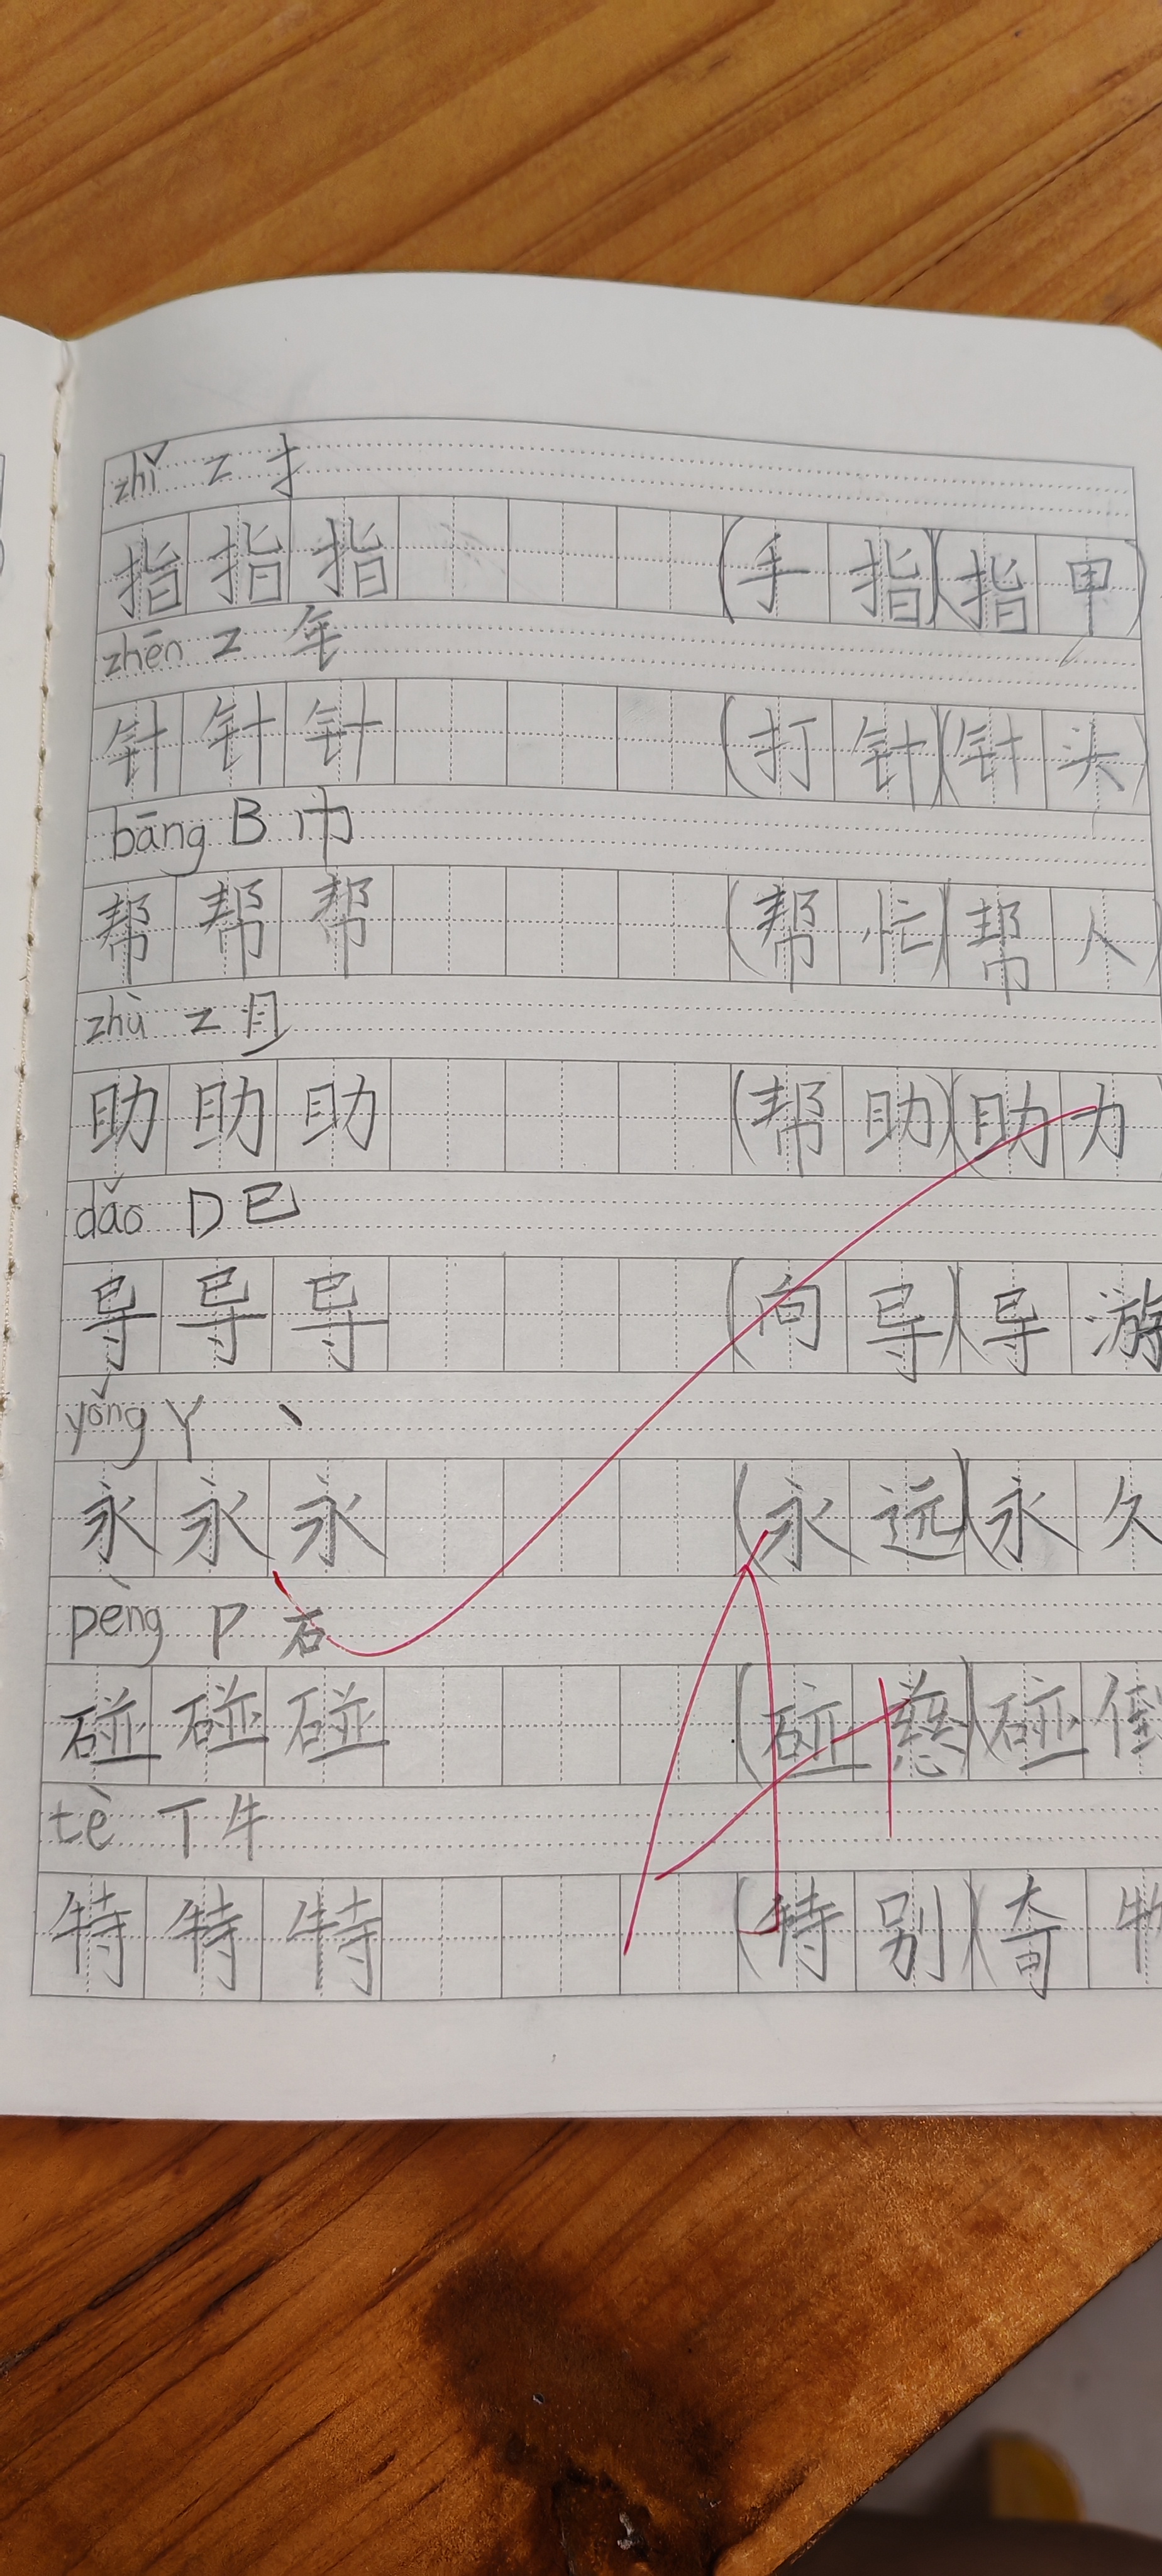 zhǐ Z 扌
指 指 指 (手 指)(指 甲)
zhēn Z 钅
针 针 针 (打 针)(针 头)
bāng B 巾
帮 帮 帮 (帮 忙)(帮 人)
zhù Z 月
助 助 助 (帮 助)(助 力
dǎo D 巳
导 导 导 (向 导)(导 游
yǒng Y 丶
永 永 永 (永 远)(永 久
pèng P 石
碰 碰 碰 (碰 )(碰 倒
tè T 牛
特 特 特 (特 别)(奇 物
A+